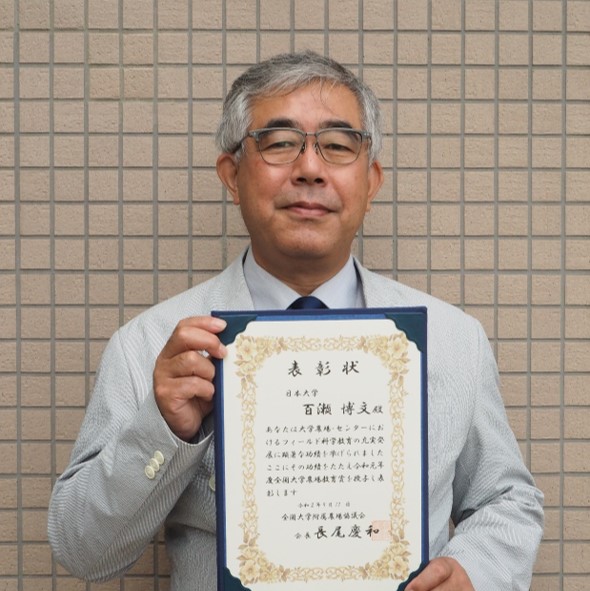 表彰状
日本大学
百瀬 博文殿
あなたは大学農場・センターにお
けるフィールド科学教育の充実発
展に顕著な功績を挙げられました
ここにその功績をたたえ令和元年
度全国大学農場教育賞を授与し表
彰します
全国大学附属農場協議会
会長 長尾慶和